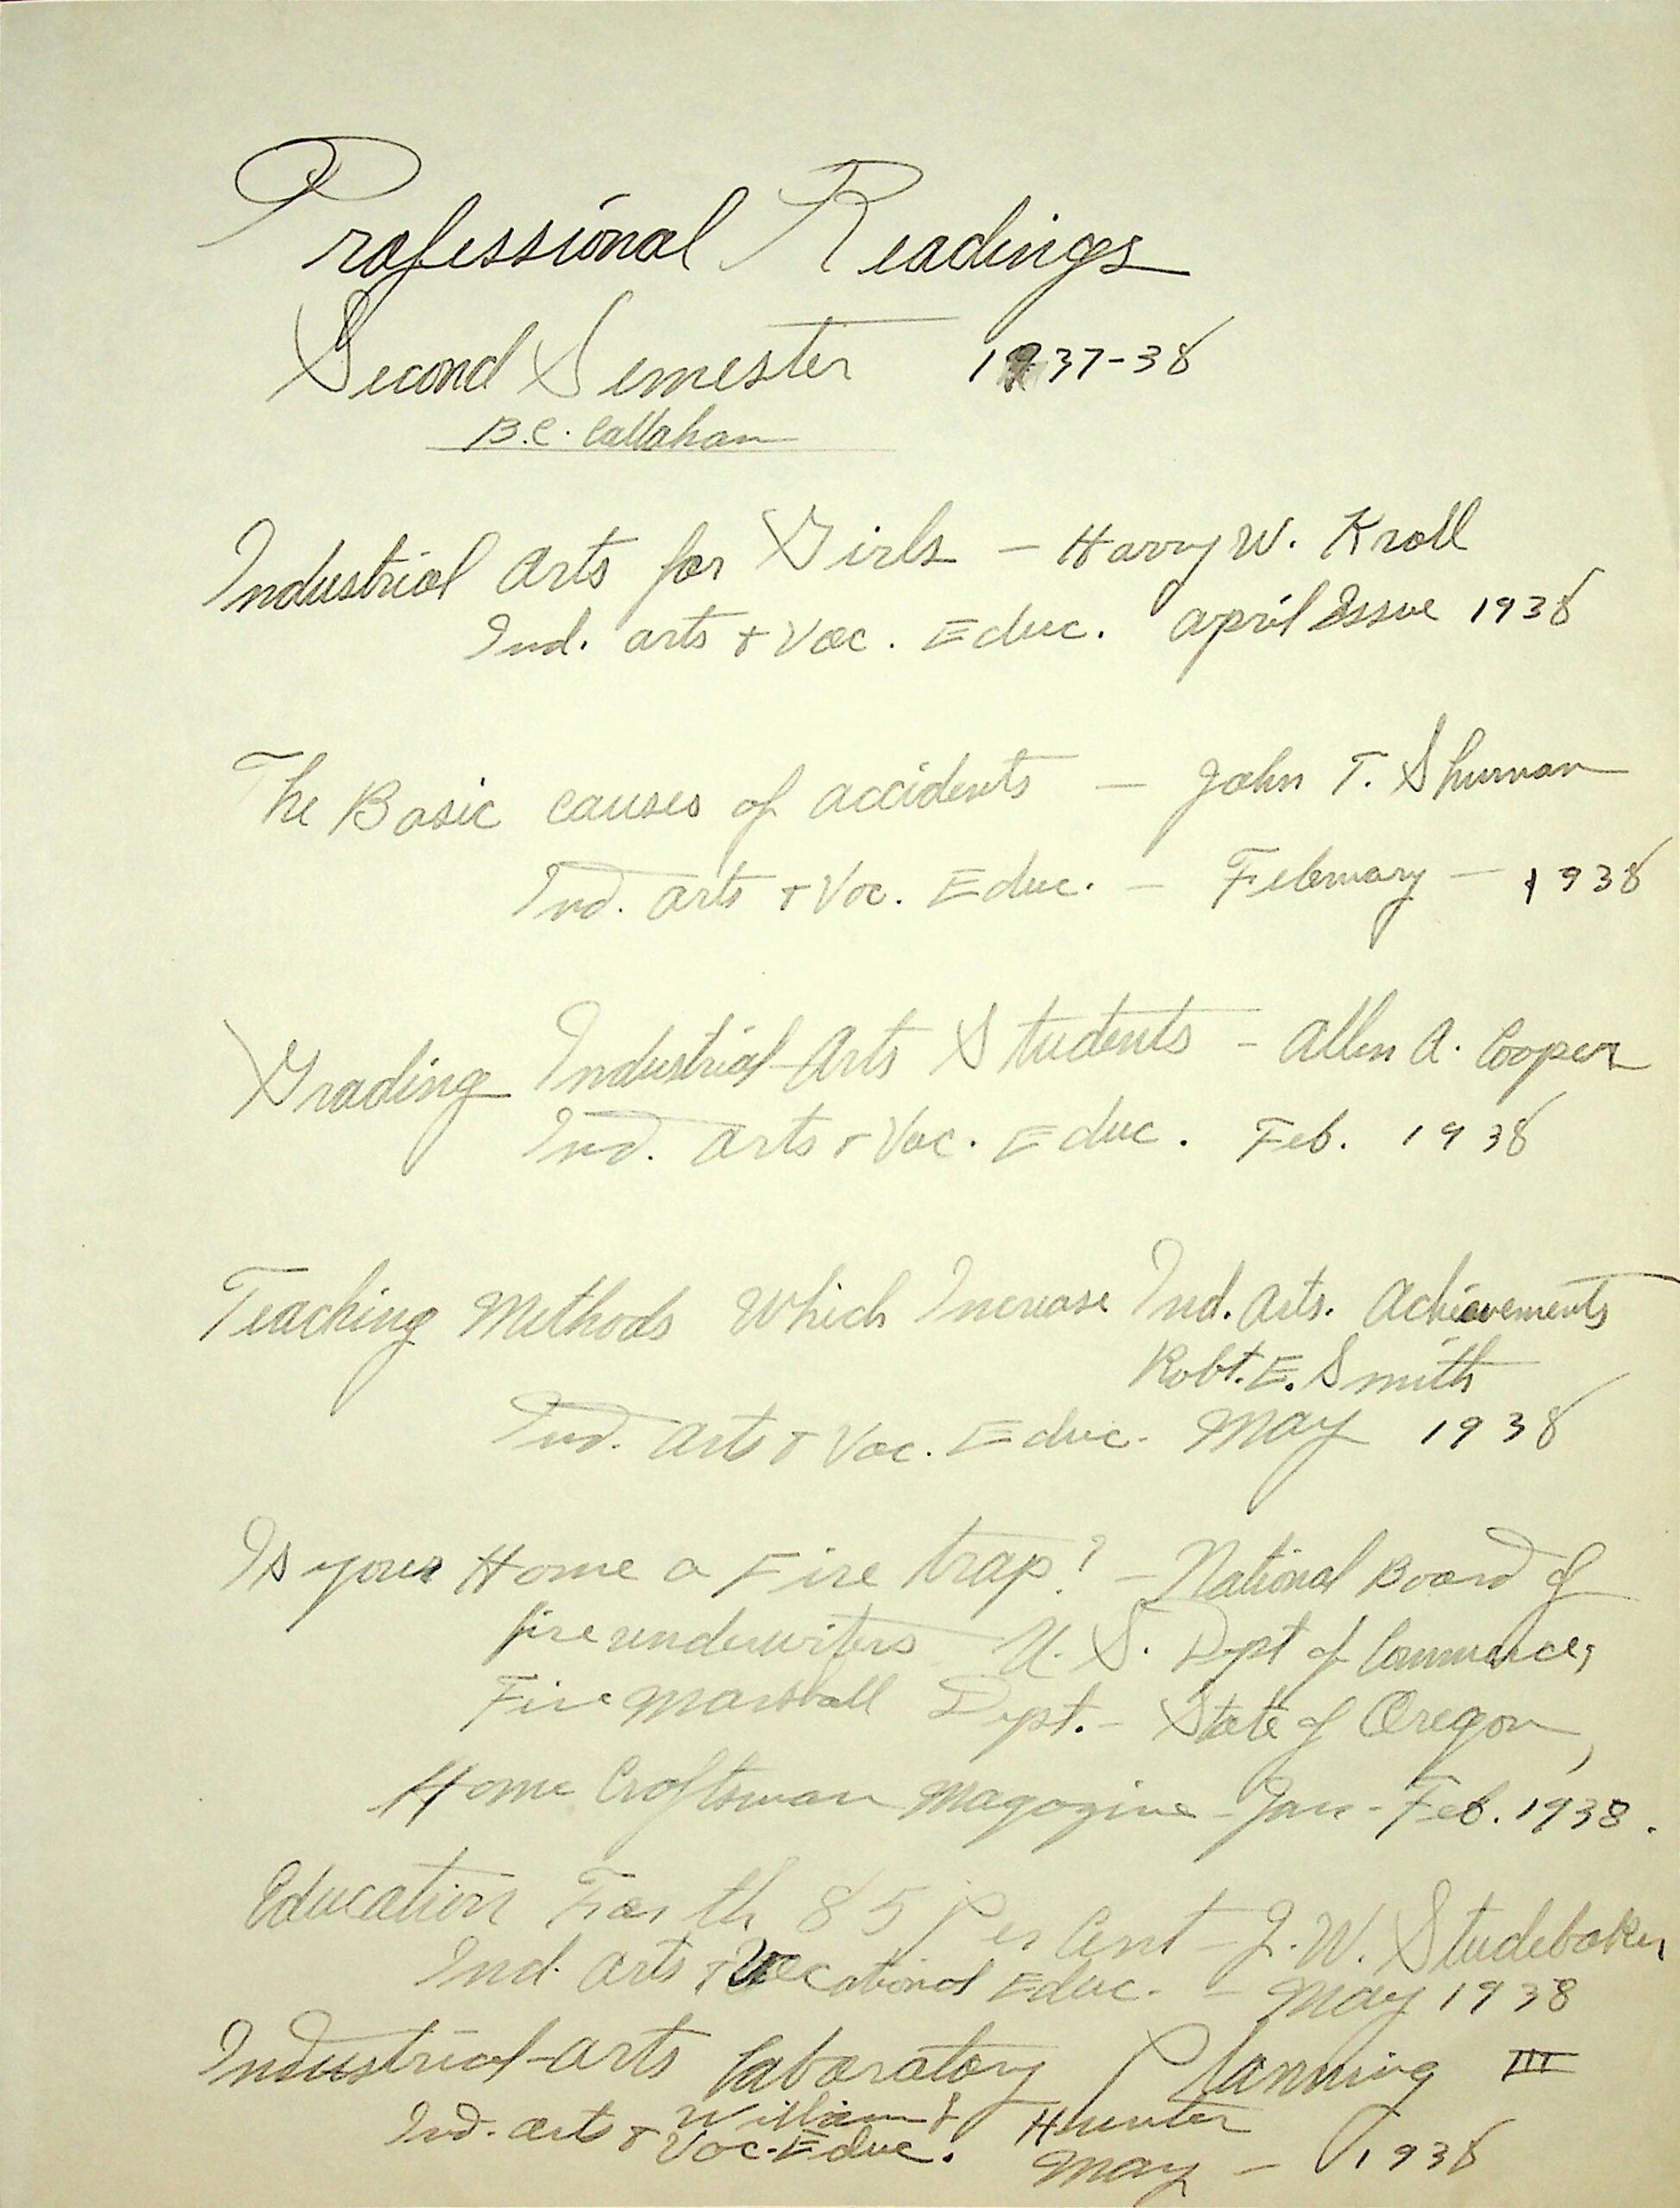 Professional Readings
Second Semester 1937-38
B.C. Callahan
Industrial Arts for Girls - Harry W. Kroll
Ind. arts + Voc. Educ. april Issue 1938
The Basic causes of accidents - John T. Shuman
Ind. arts + Voc. Educ. - February - 1938
Grading Industrial-Arts Students - Allen A. Cooper
Ind. arts + Voc. Educ. Feb. 1938
Teaching Methods Which Increase Ind. Arts. Achievements
Robt. E. Smith
Ind. arts + Voc. Educ. May 1938
Is your Home a Fire trap? - National Board of
fire underwiters U. S. Dept of Commerce,
Fire Marshall Dept. - State of Oregon,
Home Craftsman Magazine - Jan - Feb. 1938.
Education For th 85 Per Cent - J. W. Studebaker
Ind. Arts + Vocational Educ. - May 1938
Industrial-arts laboratory Planning III
William L Hunter
Ind. arts + Voc. Educ. May - 1938